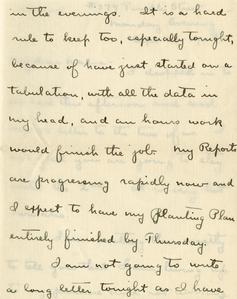 in the evenings. It is a hard
rule to keep too, especially tonight,
because of have just started on a
tabulation, with all the data in
my head, and an hours work
would finish the job. My Reports
are progressing rapidly now and
I expect to have my Planting Plan
entirely finished by Thursday.
I am not going to write
a long letter tonight as I have